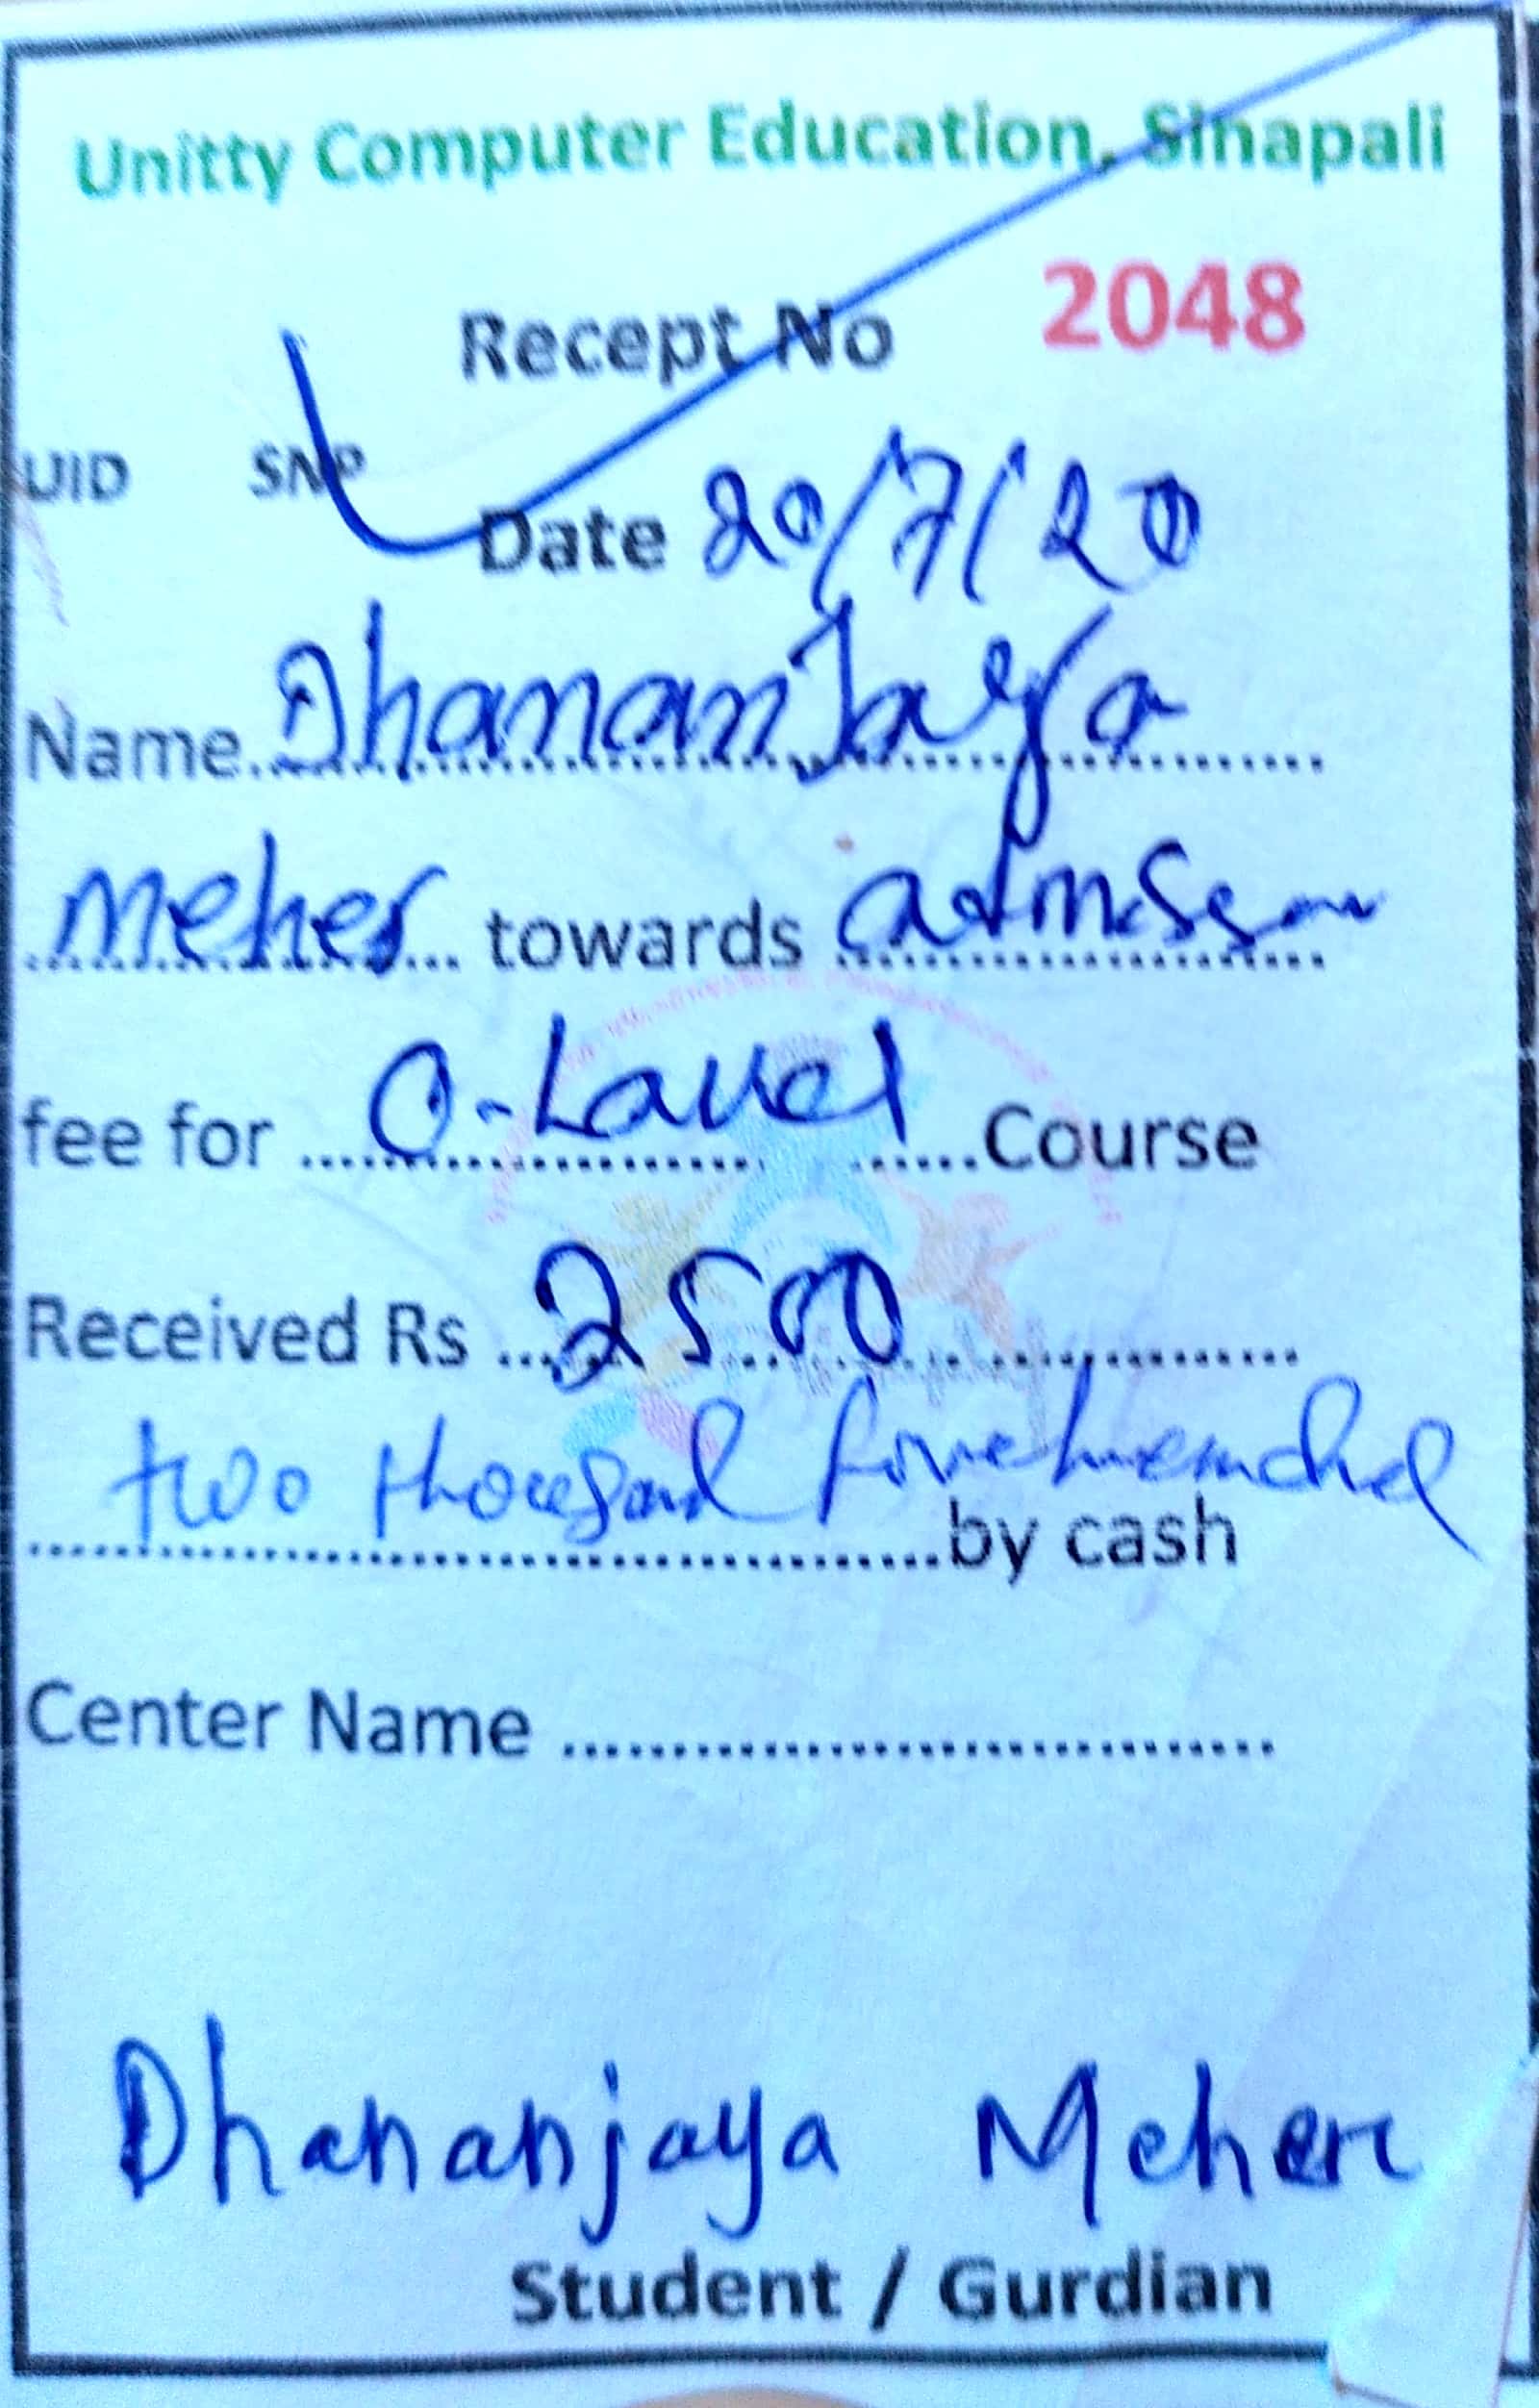 Unitty Computer Education, Sinapali
Recept No 2048
UID SNP
Date 20/7/20
Name Dhananjaya
Meher towards admission
fee for O-Lavel Course
Received Rs 2500
two thousand five hundred by cash
Center Name
Dhananjaya Meher
Student / Gurdian